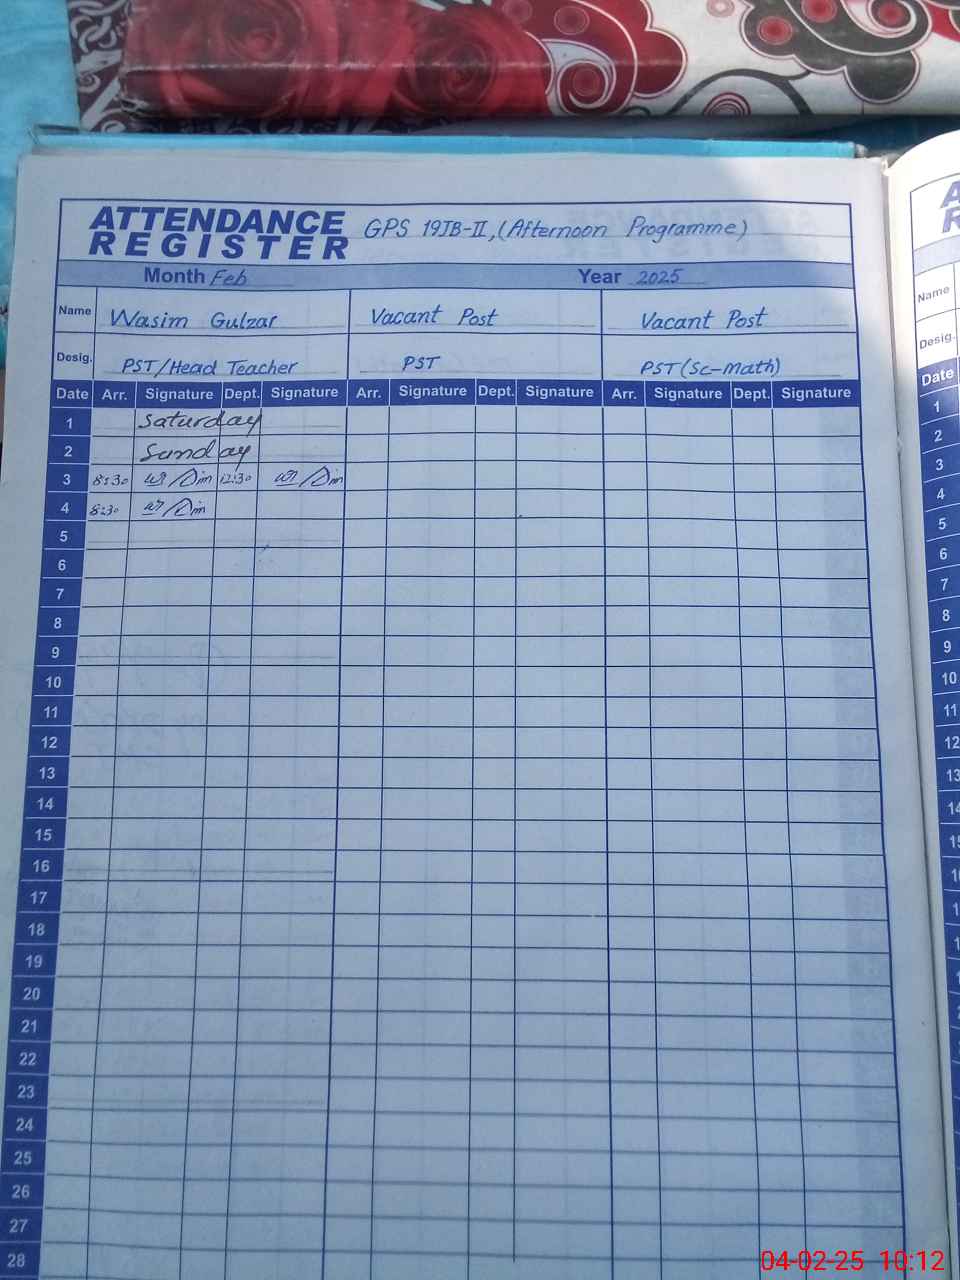 ATTENDANCE REGISTER GPS 19JB-II, (Afternoon Programme)
Month Feb Year 2025
Name Wasim Gulzar Vacant Post Vacant Post
Desig. PST/Head Teacher PST PST(Sc-Math)
Date Arr. Signature Dept. Signature Arr. Signature Dept. Signature Arr. Signature Dept. Signature
1 Saturday
2 Sunday
3 8:30 12:30
4 8:30
5
6
7
8
9
10
11
12
13
14
15
16
17
18
19
20
21
22
23
24
25
26
27
28
Name
Desig.
Date
1
2
3
4
5
6
7
8
9
10
11
12
13
04-02-25 10:12